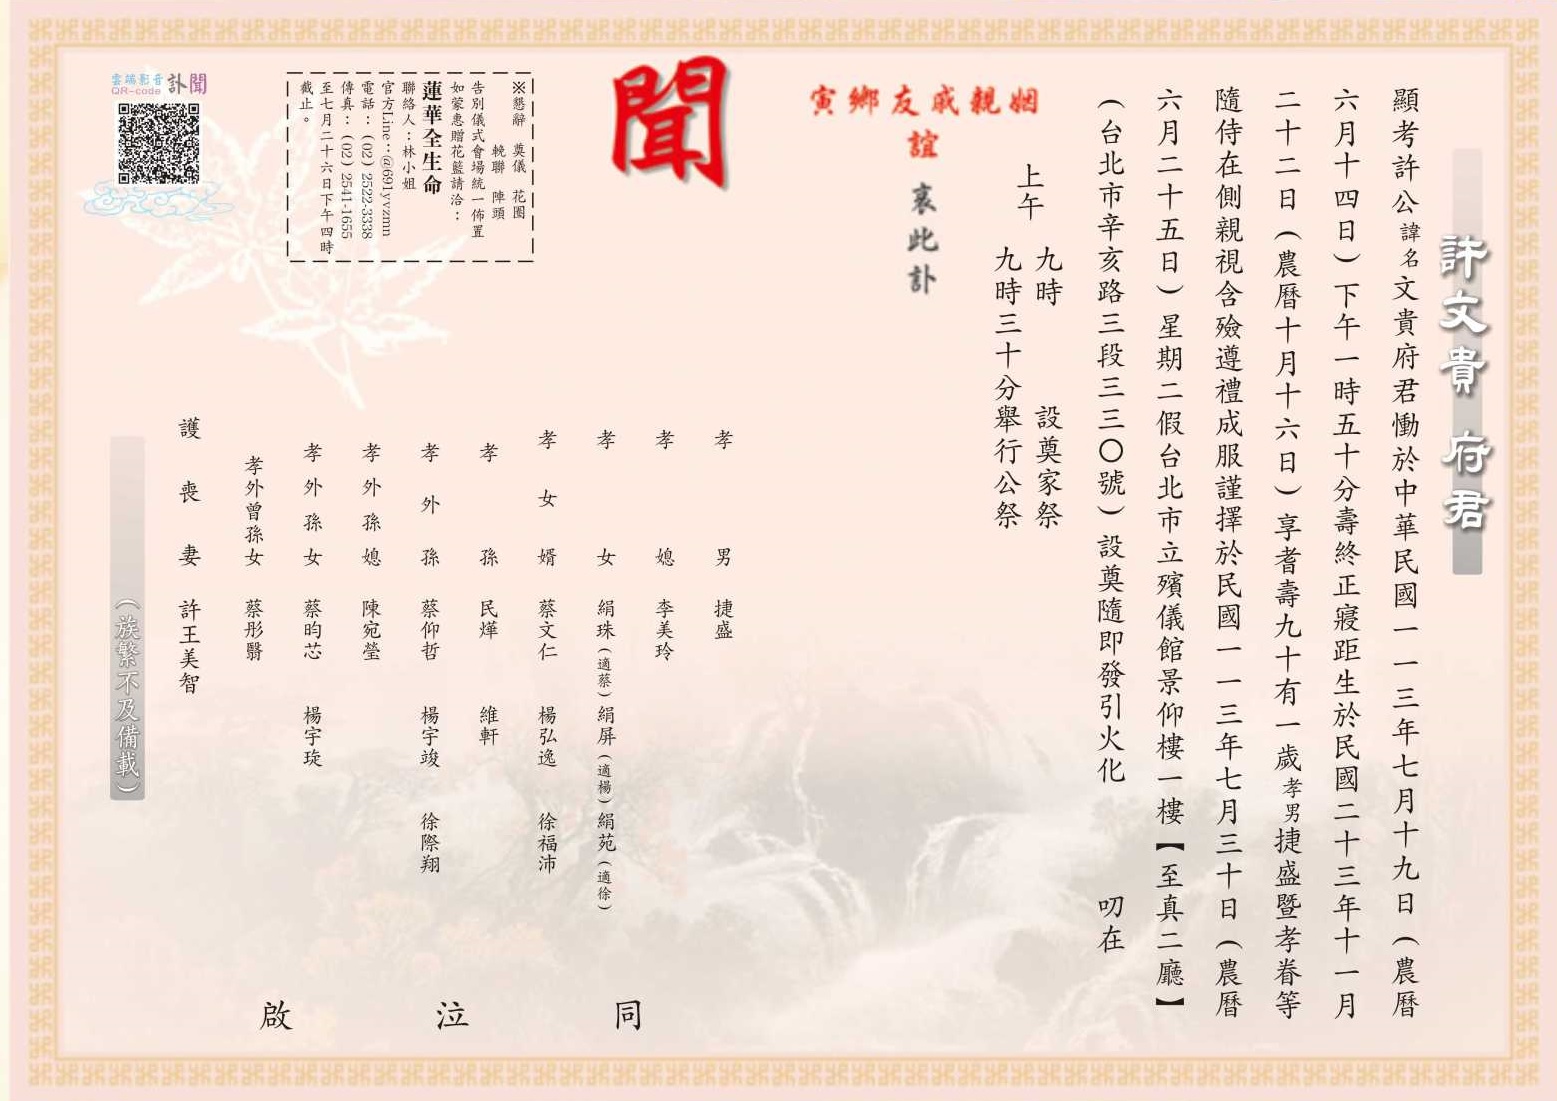 許文貴 府君
顯考許公諱名文貴府君慟於中華民國一一三年七月十九日（農曆
六月十四日）下午一時五十分壽終正寢距生於民國二十三年十一月
二十二日（農曆十月十六日）享耆壽九十有一歲孝男捷盛暨孝眷等
隨侍在側親視含殮遵禮成服謹擇於民國一一三年七月三十日（農曆
六月二十五日）星期二假台北市立殯儀館景仰樓一樓【至真二廳】
（台北市辛亥路三段三三〇號）設奠隨即發引火化 叨在
上午 九時 設奠家祭
九時三十分舉行公祭
姻親戚友鄉寅
誼
哀此訃
聞
孝男 捷盛
孝媳 李美玲
孝女 絹珠（適蔡）絹屏（適楊）絹苑（適徐）
孝女婿 蔡文仁 楊弘逸 徐福沛
孝孫 民燁 維軒
孝外孫 蔡仰哲 楊宇竣 徐際翔
孝外孫媳 陳宛瑩
孝外孫女 蔡昀芯 楊宇琁
孝外曾孫女 蔡彤翳
護喪妻 許王美智
同泣啟
（族繁不及備載）
※懇辭 奠儀 花圈
輓聯 陣頭
告別儀式會場統一佈置
如蒙惠贈花籃請洽：
蓮華全生命
聯絡人：林小姐
官方Line：@691yvzmn
電話：(02) 2522-3338
傳真：(02) 2541-1655
至七月二十六日下午四時
截止。
雲端影音 訃聞
QR-code